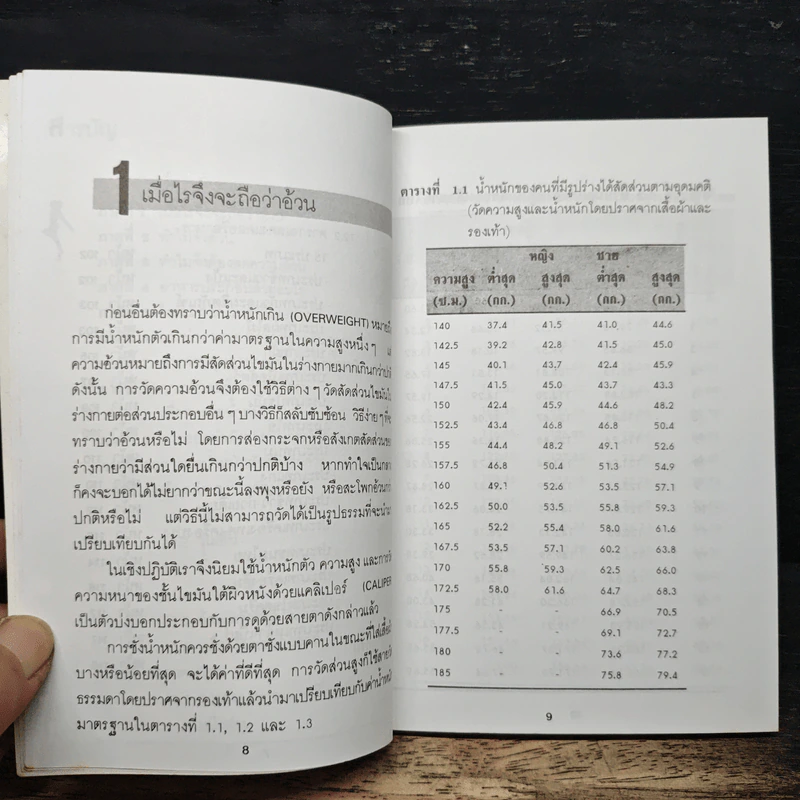 1 เมื่อไรจึงจะถือว่าอ้วน
ก่อนอื่นต้องทราบว่าน้ำหนักเกิน (OVERWEIGHT)
การมีน้ำหนักตัวเกินกว่าค่ามาตรฐานในความสูงหนึ่งๆ
ความอ้วนหมายถึงการมีสัดส่วนไขมันในร่างกายมากเกินกว่า
ดังนั้น การวัดความอ้วนจึงต้องใช้วิธีต่างๆ วัดสัดส่วนไขมัน
ร่างกายต่อส่วนประกอบอื่นๆ บางวิธีก็สลับซับซ้อน วิธีง่ายๆ
ทราบว่าอ้วนหรือไม่ โดยการส่องกระจกหรือสังเกตสัดส่วน
ร่างกายว่ามีส่วนใดยื่นเกินกว่าปกติบ้าง หากทำใจเป็น
ก็คงจะบอกได้ไม่ยากว่าขณะนี้ลงพุงหรือยัง หรือสะโพกอ้วน
ปกติหรือไม่ แต่วิธีนี้ไม่สามารถวัดได้เป็นรูปธรรมที่จะ
เปรียบเทียบกันได้
ในเชิงปฏิบัติเราจึงนิยมใช้น้ำหนักตัว ความสูง และการ
ความหนาของชั้นไขมันใต้ผิวหนังด้วยแคลิเปอร์ (CALIPER
เป็นตัวบ่งบอกประกอบกับการดูด้วยสายตาดังกล่าวแล้ว
การชั่งน้ำหนักควรชั่งด้วยตาชั่งแบบคานในขณะที่ใส่
บางหรือน้อยที่สุด จะได้ค่าที่ดีที่สุด การวัดส่วนสูงก็ใช้
ธรรมดาโดยปราศจากรองเท้าแล้วนำมาเปรียบเทียบกับค่า
มาตรฐานในตารางที่ 1.1, 1.2 และ 1.3
8
ตารางที่ 1.1 น้ำหนักของคนที่มีรูปร่างได้สัดส่วนตามอุดมคติ
(วัดความสูงและน้ำหนักโดยปราศจากเสื้อผ้าและ
รองเท้า)
หญิง ชาย
ความสูง ต่ำสุด สูงสุด ต่ำสุด สูงสุด
(ซ.ม.) (กก.) (กก.) (กก.) (กก.)
140 37.4 41.5 41.0 44.6
142.5 39.2 42.8 41.5 45.0
145 40.1 43.7 42.4 45.9
147.5 41.5 45.0 43.7 43.3
150 42.4 45.9 44.6 48.2
152.5 43.4 46.8 46.8 50.4
155 44.4 48.2 49.1 52.6
157.5 46.8 50.4 51.3 54.9
160 49.1 52.6 53.5 57.1
162.5 50.0 53.5 55.8 59.3
165 52.2 55.4 58.0 61.6
167.5 53.5 57.1 60.2 63.8
170 55.8 59.3 62.5 66.0
172.5 58.0 61.6 64.7 68.3
175 - - 66.9 70.5
177.5 - - 69.1 72.7
180 - - 73.6 77.2
185 - - 75.8 79.4
9